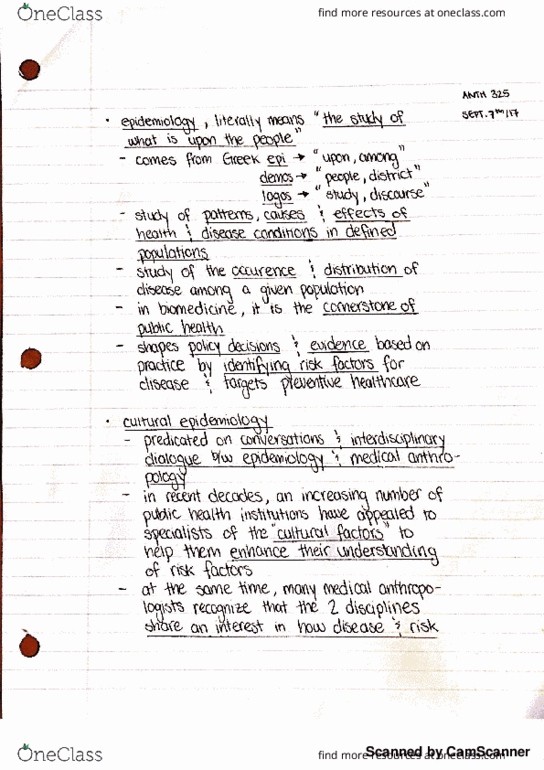 OneClass
find more resources at oneclass.com
ANTH 325
SEPT. 7TH/17
• epidemiology, literally means "the study of
what is upon the people"
- comes from Greek epi → "upon, among"
demos → "people, district"
logos → "study, discourse"
- study of patterns, causes & effects of
health & disease conditions in defined
populations
- study of the occurence & distribution of
disease among a given population
- in biomedicine, it is the cornerstone of
public health
- shapes policy decisions & evidence based on
practice by identifying risk factors for
disease & targets preventive healthcare
• cultural epidemiology
- predicated on conversations & interdisciplinary
dialogue b/w epidemiology & medical anthro-
pology
- in recent decades, an increasing number of
public health institutions have appealed to
specialists of the "cultural factors" to
help them enhance their understanding
of risk factors
- at the same time, many medical anthropo-
logists recognize that the 2 disciplines
share an interest in how disease & risk
OneClass
find more resources at oneclass.com
Scanned by CamScanner